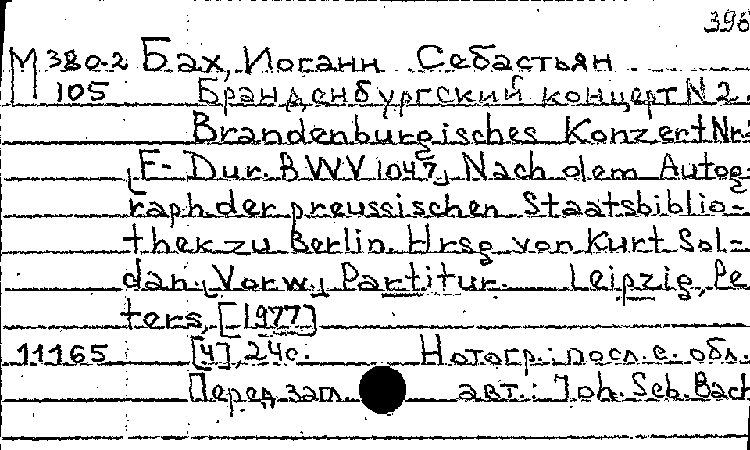 396
М380-2 Бах, Иоганн Себастьян
105 Бранденбургский концерт N 2.
Brandenburgisches Konzert Nr.
[F-Dur. BWV 1047] Nach dem Autog-
raph der preussischen Staatsbiblio-
thek zu Berlin. Hrsg von Kurt Sol-
dan. [Vorw.] Partitur. Leipzig, Pe
ters, [1977]
11165 [4], 24с. Нотогр.: посл. с. обл.
Перед загл. авт.: Joh. Seb. Bach